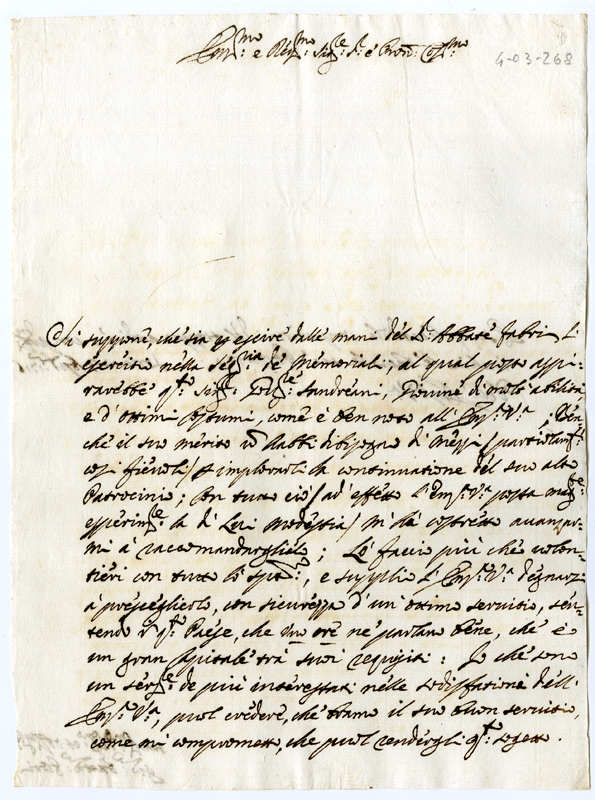 Em.mo e Rev.mo Sig.re S.r e Pron: Col.mo
4-03-268
Si suppone, che sia p escire dalle mani del S.r Abbate Fabri l'
esercitio nella Seg.ria de Memoriali, al qual posto aspi-
rarebbe q.to Sig.r Gio: Sandreani, Giovine di molta abilità,
e d'ottimi costumi, come è ben noto all'Em.a V.a; Ben-
che il suo merito n habbi di bisogno di mezzi / particolarm.te
così fievoli / p implorarli la continuatione del suo alto
Patrocinio; Con tutto ciò / ad effetto l'Em.a V.a possa mag.te
esperim.re la di Lui modestia / m'hà costretto avanzar-
mi à raccomandarglielo; Lo faccio più che volon-
tieri con tutto lo spirito, e supplico l'Em.a V.a degnarsi
à presceglierlo, con sicurezza d'un ottimo servitio, sen-
tendo in q.to Paese, che uno ore ne parlano bene, che è
un gran capitale trà suoi requisiti: Io che sono
un ser.re de più interessati nelle sodisfationi dell'
Em.a V.a, puol credere, che bramo il suo buon servitio,
come mi comprometto, che puol rendergli q.to sogetto.